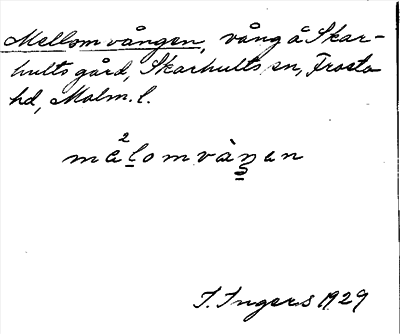 Mellomvången, vång å Skar-
hults gård, Skarhults sn, Frosta
hd, Malm. l.
me²l̲omvàn̲en
I. Ingers 1929